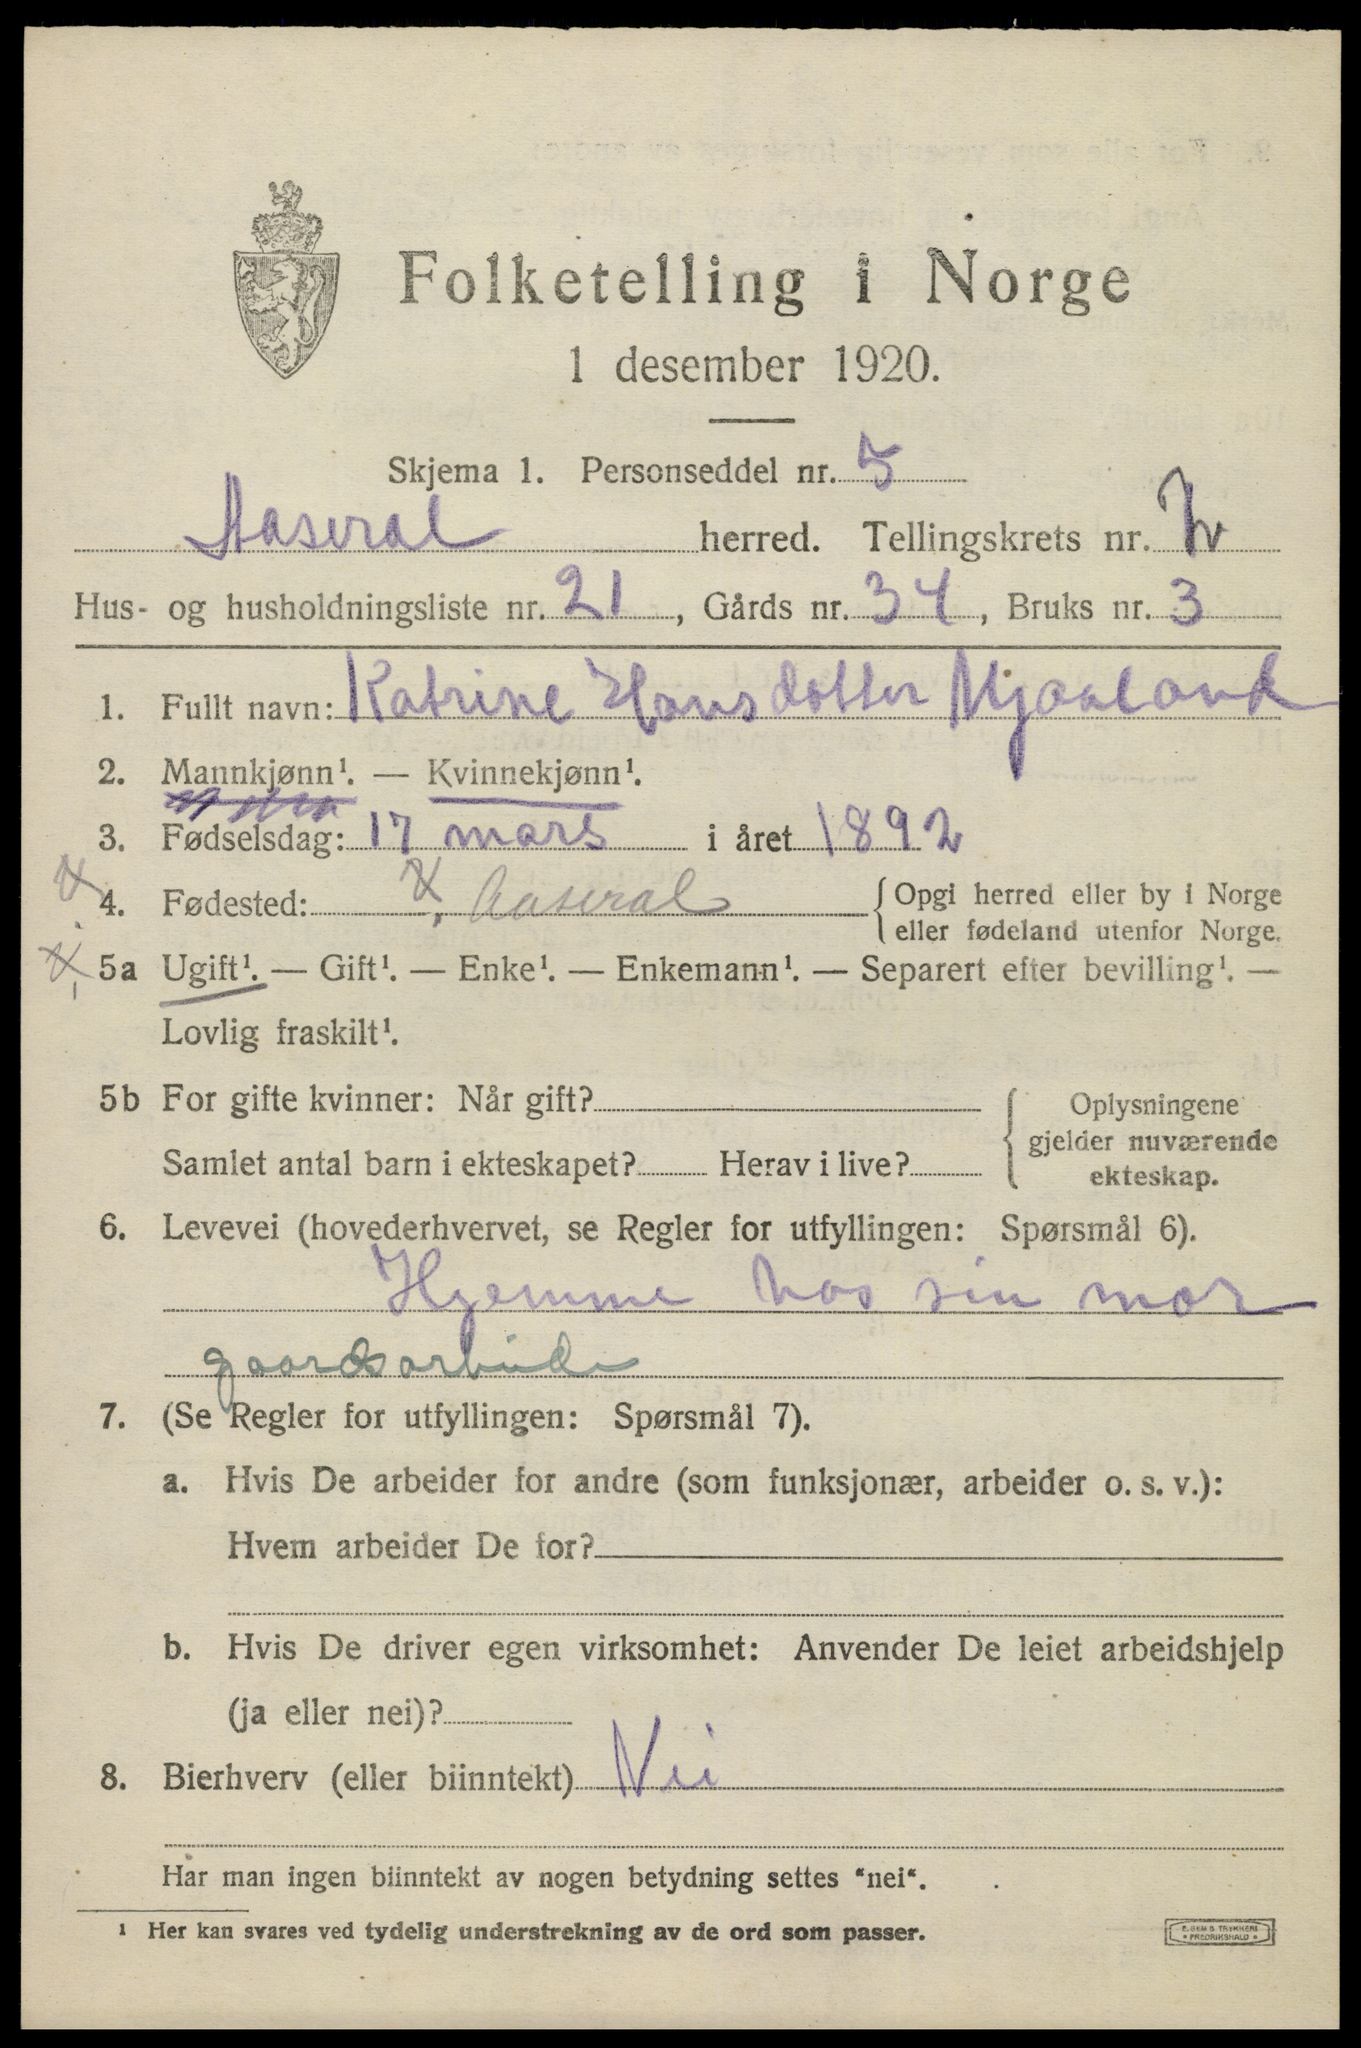 Folketelling i Norge
1 desember 1920.
Skjema 1. Personseddel nr. 5
Aaseral herred. Tellingskrets nr.
Hus- og husholdningsliste nr. 21, Gårds nr. 34, Bruks nr. 3
1. Fullt navn: Katrine Hansdotter Mjaaland
2. Mannkjønn¹. — Kvinnekjønn¹.
3. Fødselsdag: 17 mars i året 1892
4. Fødested: Aaseral {Opgi herred eller by i Norge
eller fødeland utenfor Norge.
5a Ugift¹. — Gift¹. — Enke¹. — Enkemann¹. — Separert efter bevilling¹. —
Lovlig fraskilt¹.
5b For gifte kvinner: Når gift?
Samlet antal barn i ekteskapet? Herav i live?
{Oplysningene
gjelder nuværende
ekteskap.
6. Levevei (hovederhvervet, se Regler for utfyllingen: Spørsmål 6).
Hjemme hos sin mor
gaardsarbeide
7. (Se Regler for utfyllingen: Spørsmål 7).
a. Hvis De arbeider for andre (som funksjonær, arbeider o. s. v.):
Hvem arbeider De for?
b. Hvis De driver egen virksomhet: Anvender De leiet arbeidshjelp
(ja eller nei)?
8. Bierhverv (eller biinntekt) Nei
Har man ingen biinntekt av nogen betydning settes "nei".
¹ Her kan svares ved tydelig understrekning av de ord som passer.
E. SEM'S TRYKKERI
FREDRIKSHALD